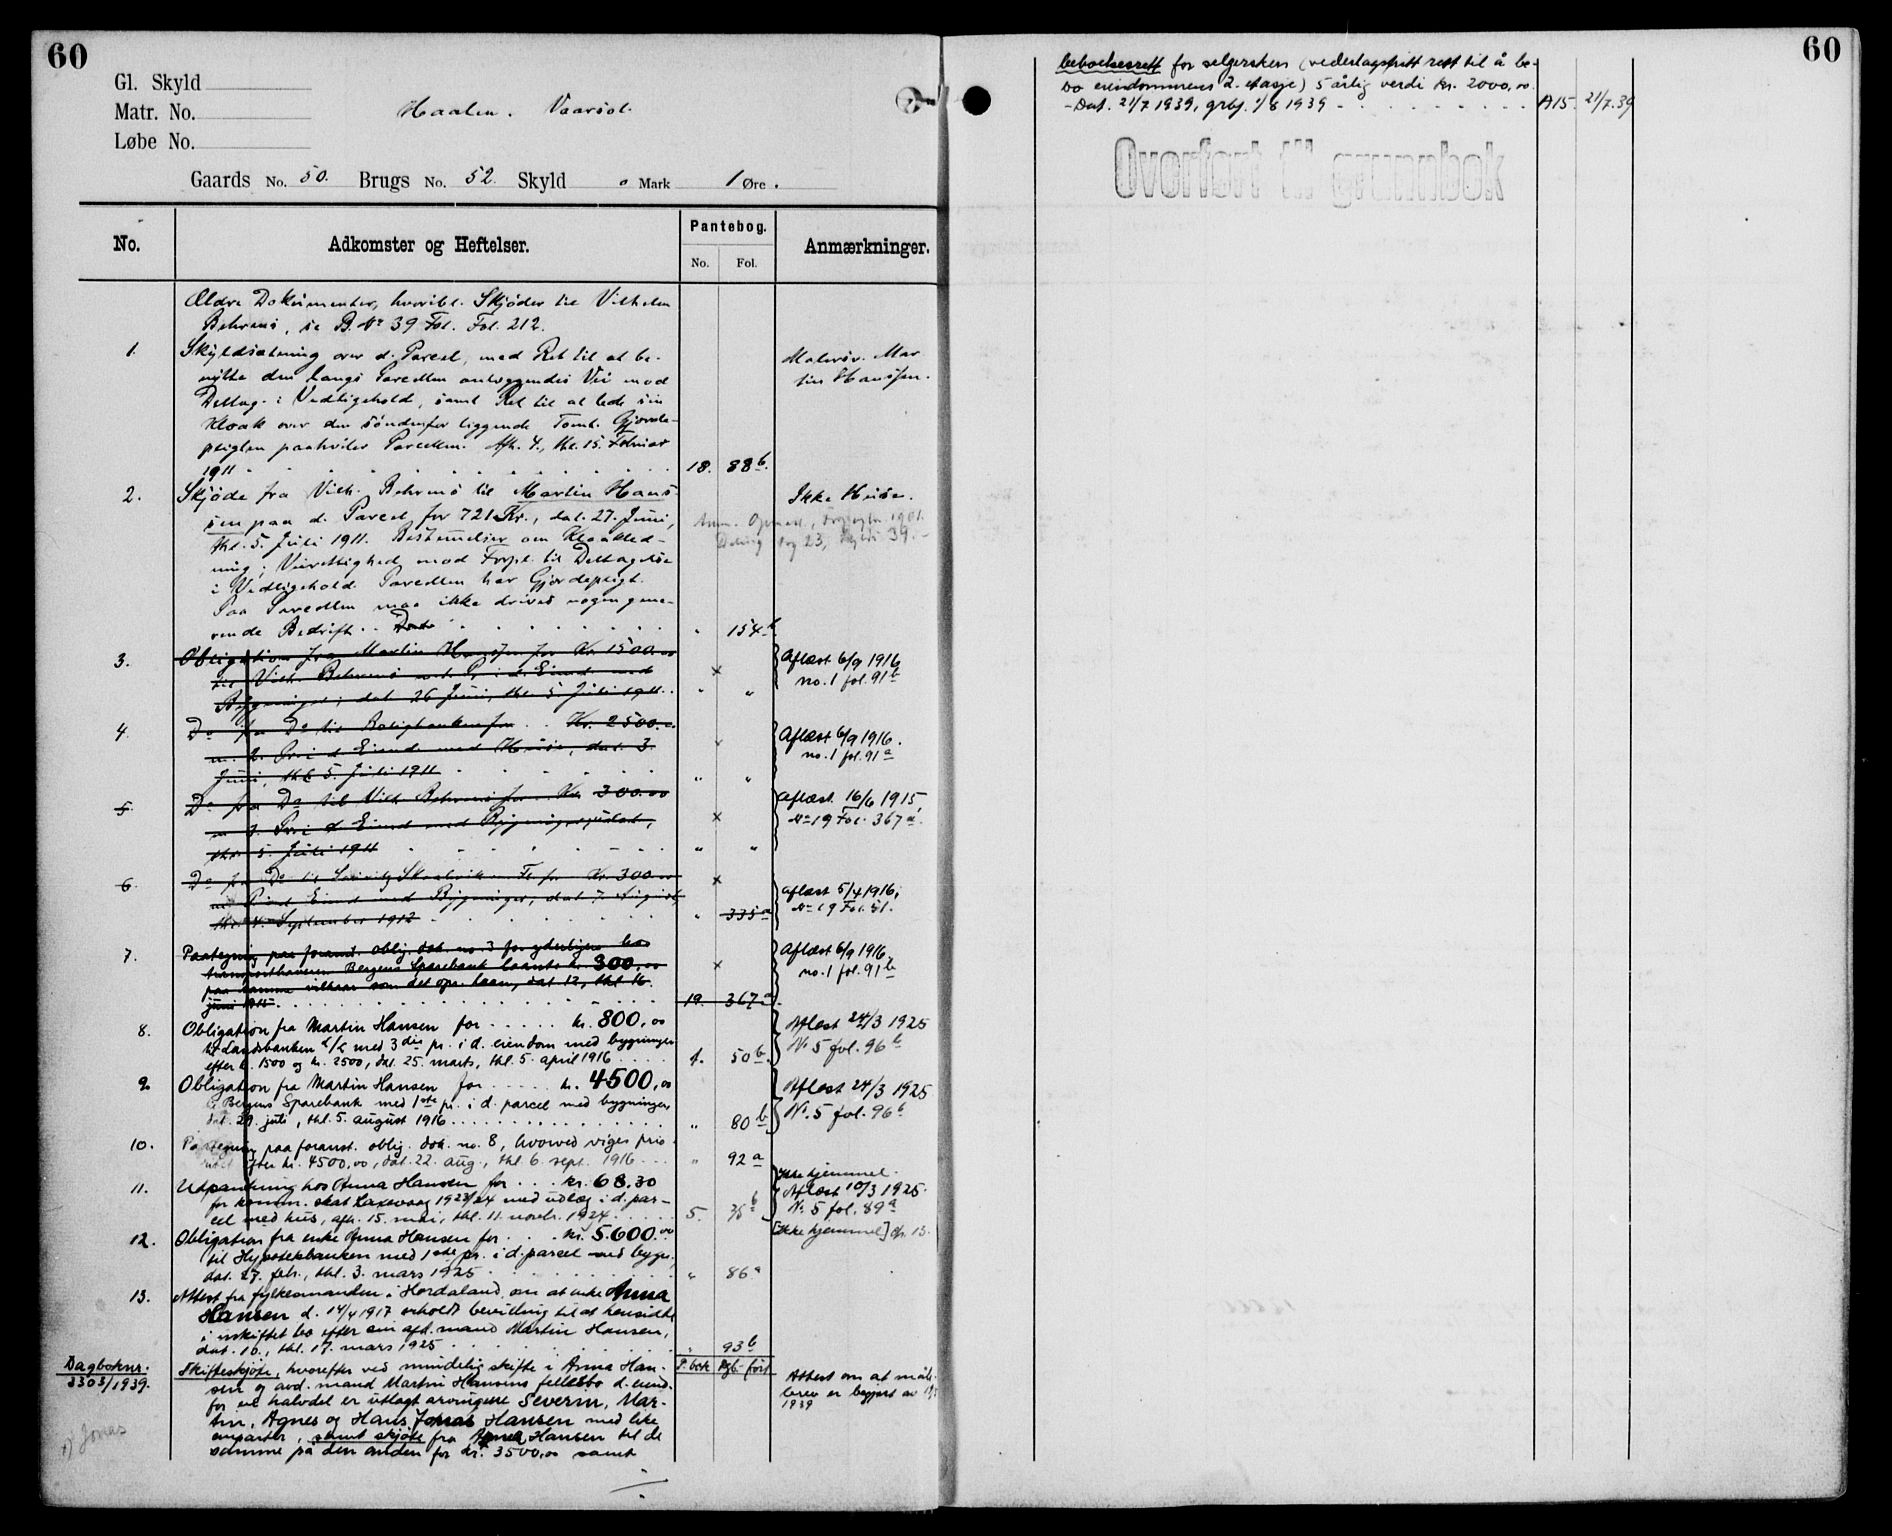 60
Gl. Skyld
Matr. No.
Haalen. Vaarsol.
Løbe No.
Gaards No. 50. Brugs No. 52. Skyld 0 Mark 1 Øre.
No. Adkomster og Heftelser. Pantebog. Anmærkninger.
No. Fol.
Ældre Dokumenter, hvoribl. Skjøder til Vilhelm
Behrens, se B. No 39 Fol. 212.
1. Skyldsætning over d. Parcel, med Ret til at be- Malersv. Mar
nytte den langs Parcellen anlæggendes Vei mod tin Hanssen.
Deltag. i Vedligehold, samt Ret til at lede sin
Kloak over den søndenfor liggende Tomt. Gjerde-
pligten paahviler Parcellen. Afh. 4., thl. 15. Februar
1911 18. 88b.
2. Skjøde fra Vilh. Behrens til Martin Hans- Ikke Huse.
sen paa d. Parcel for 721 Kr., dat. 27. Juni,
thl. 5. Juli 1911. Bestemmelser om Kloakled-
ning; Veirettighed mod Forpl. til Deltagelse
i Vedligehold. Parcellen har Gjerdepligt.
Paa Parcellen maa ikke drives nogen gene-
rende Bedrift. " 154b
3. Obligation fra Martin Hanssen for Kr. 1500.00 Aflæst 6/9 1916
til Vilh. Behrens m. 1. Pr. i d. Eiend. med no. 1 fol. 91b
Bygninger; dat. 26 Juni, thl. 5. Juli 1911. " "
4. Do fra Do til Boligbanken for Kr. 2500. Aflæst 6/9 1916.
m. 2. Pr. i d. Eiend. med Huse, dat. 3. no. 1 fol. 91a
Juni, thl. 5. Juli 1911 " "
5. Do fra Do til Vilh. Behrens for Kr. 300.00 Aflæst 16/6 1915,
m. 3. Pr. i d. Eiend med Bygninger, No 19 Fol. 367a.
thl. 5. Juli 1911 " "
6. Do fra Do til for Kr. 300.00 aflæst 5/4 1916,
Eiend med Bygninger, dat. 7. August, No 19 Fol.
thl. 4. September 1912 " 335a
7. Paategning paa foranst. oblig. dok. no. 3 for yderligere hos Aflæst 6/9 1916,
transporthaveren Bergens Sparebank laante kr. 300,00 no. 1 fol. 91b
paa samme vilkaar som det opr. laan, dat 12, thl 16
juni 1915. 19. 367a.
8. Obligation fra Martin Hansen for kr. 800,00 Aflæst 24/3 1925
til Landsbanken A/S med 3die pr. i d. eiendom med bygninger No 5 fol. 96b
efter kr. 1500 og kr. 2500, dat. 25. marts, thl. 5. april 1916 1. 50b.
9. Obligation fra Martin Hansen for kr. 4500,00 Aflæst 24/3 1925
til Bergens Sparebank med 1ste pr. i d. parcel med bygninger, No. 5 fol. 96b
dat. 29. juli, thl. 5. august 1916 " 80b
10. Paategning paa foranst. oblig. dok. no. 8, hvorved viges prio-
ritet efter kr. 4500,00, dat. 22. aug., thl. 6. sept. 1916 " 92a
11. Udpantning hos Anna Hansen for kr. 68.30 Ikke hjemmel.
for komm. skat Laxevaag 1923/24 med utlæg i d. par- Aflæst 10/3 1925.
cel med hus, afh. 15. mai, thl. 11. novbr. 1924 5. No. 5 fol. 89a
12. Obligation fra enke Anna Hansen for kr. 5.600.00 [Ikke hjemmel] cfr. 13.
til Hypotekbanken med 1ste pr. i d. parcel med bygn.,
dat. 27. febr., thl. 3. mars 1925 " 86a
13. Attest fra fylkesmanden i Hordaland, om at enke Anna
Hansen d. 14/4 1917 erholdt bevilling til at hensidde
i uskiftet bo efter sin afd. mand Martin Hansen,
dat. 16., thl. 17. mars 1925 " 93b
Dagboknr. P. bok Dgb. ført
3303/1939. Skifteskjøte, hvorefter ved mindelig skifte i Anna Han- Attest om at måle-
sens og avd. mand Martin Hansens fellesbo d. eiend. brev er begjært av
for en halvdel er utlagt arvingene Severin, Mar- 1939
tin, Agnes og Hans Jonas Hansen med like
x) Jonas
anparter, samt skjøte fra Anna Hansen til de
samme på den anden for kr. 3500,00 samt
60
beboelsesrett for selgersken (vederlagsfritt rett til å be-
bo eiendommens 2. etasje) 5 årlig verdi kr. 2000,00.
- Dat. 21/7 1939, grbf. 1/8 1939 A15. 21/7.39
Overført til grunnbok